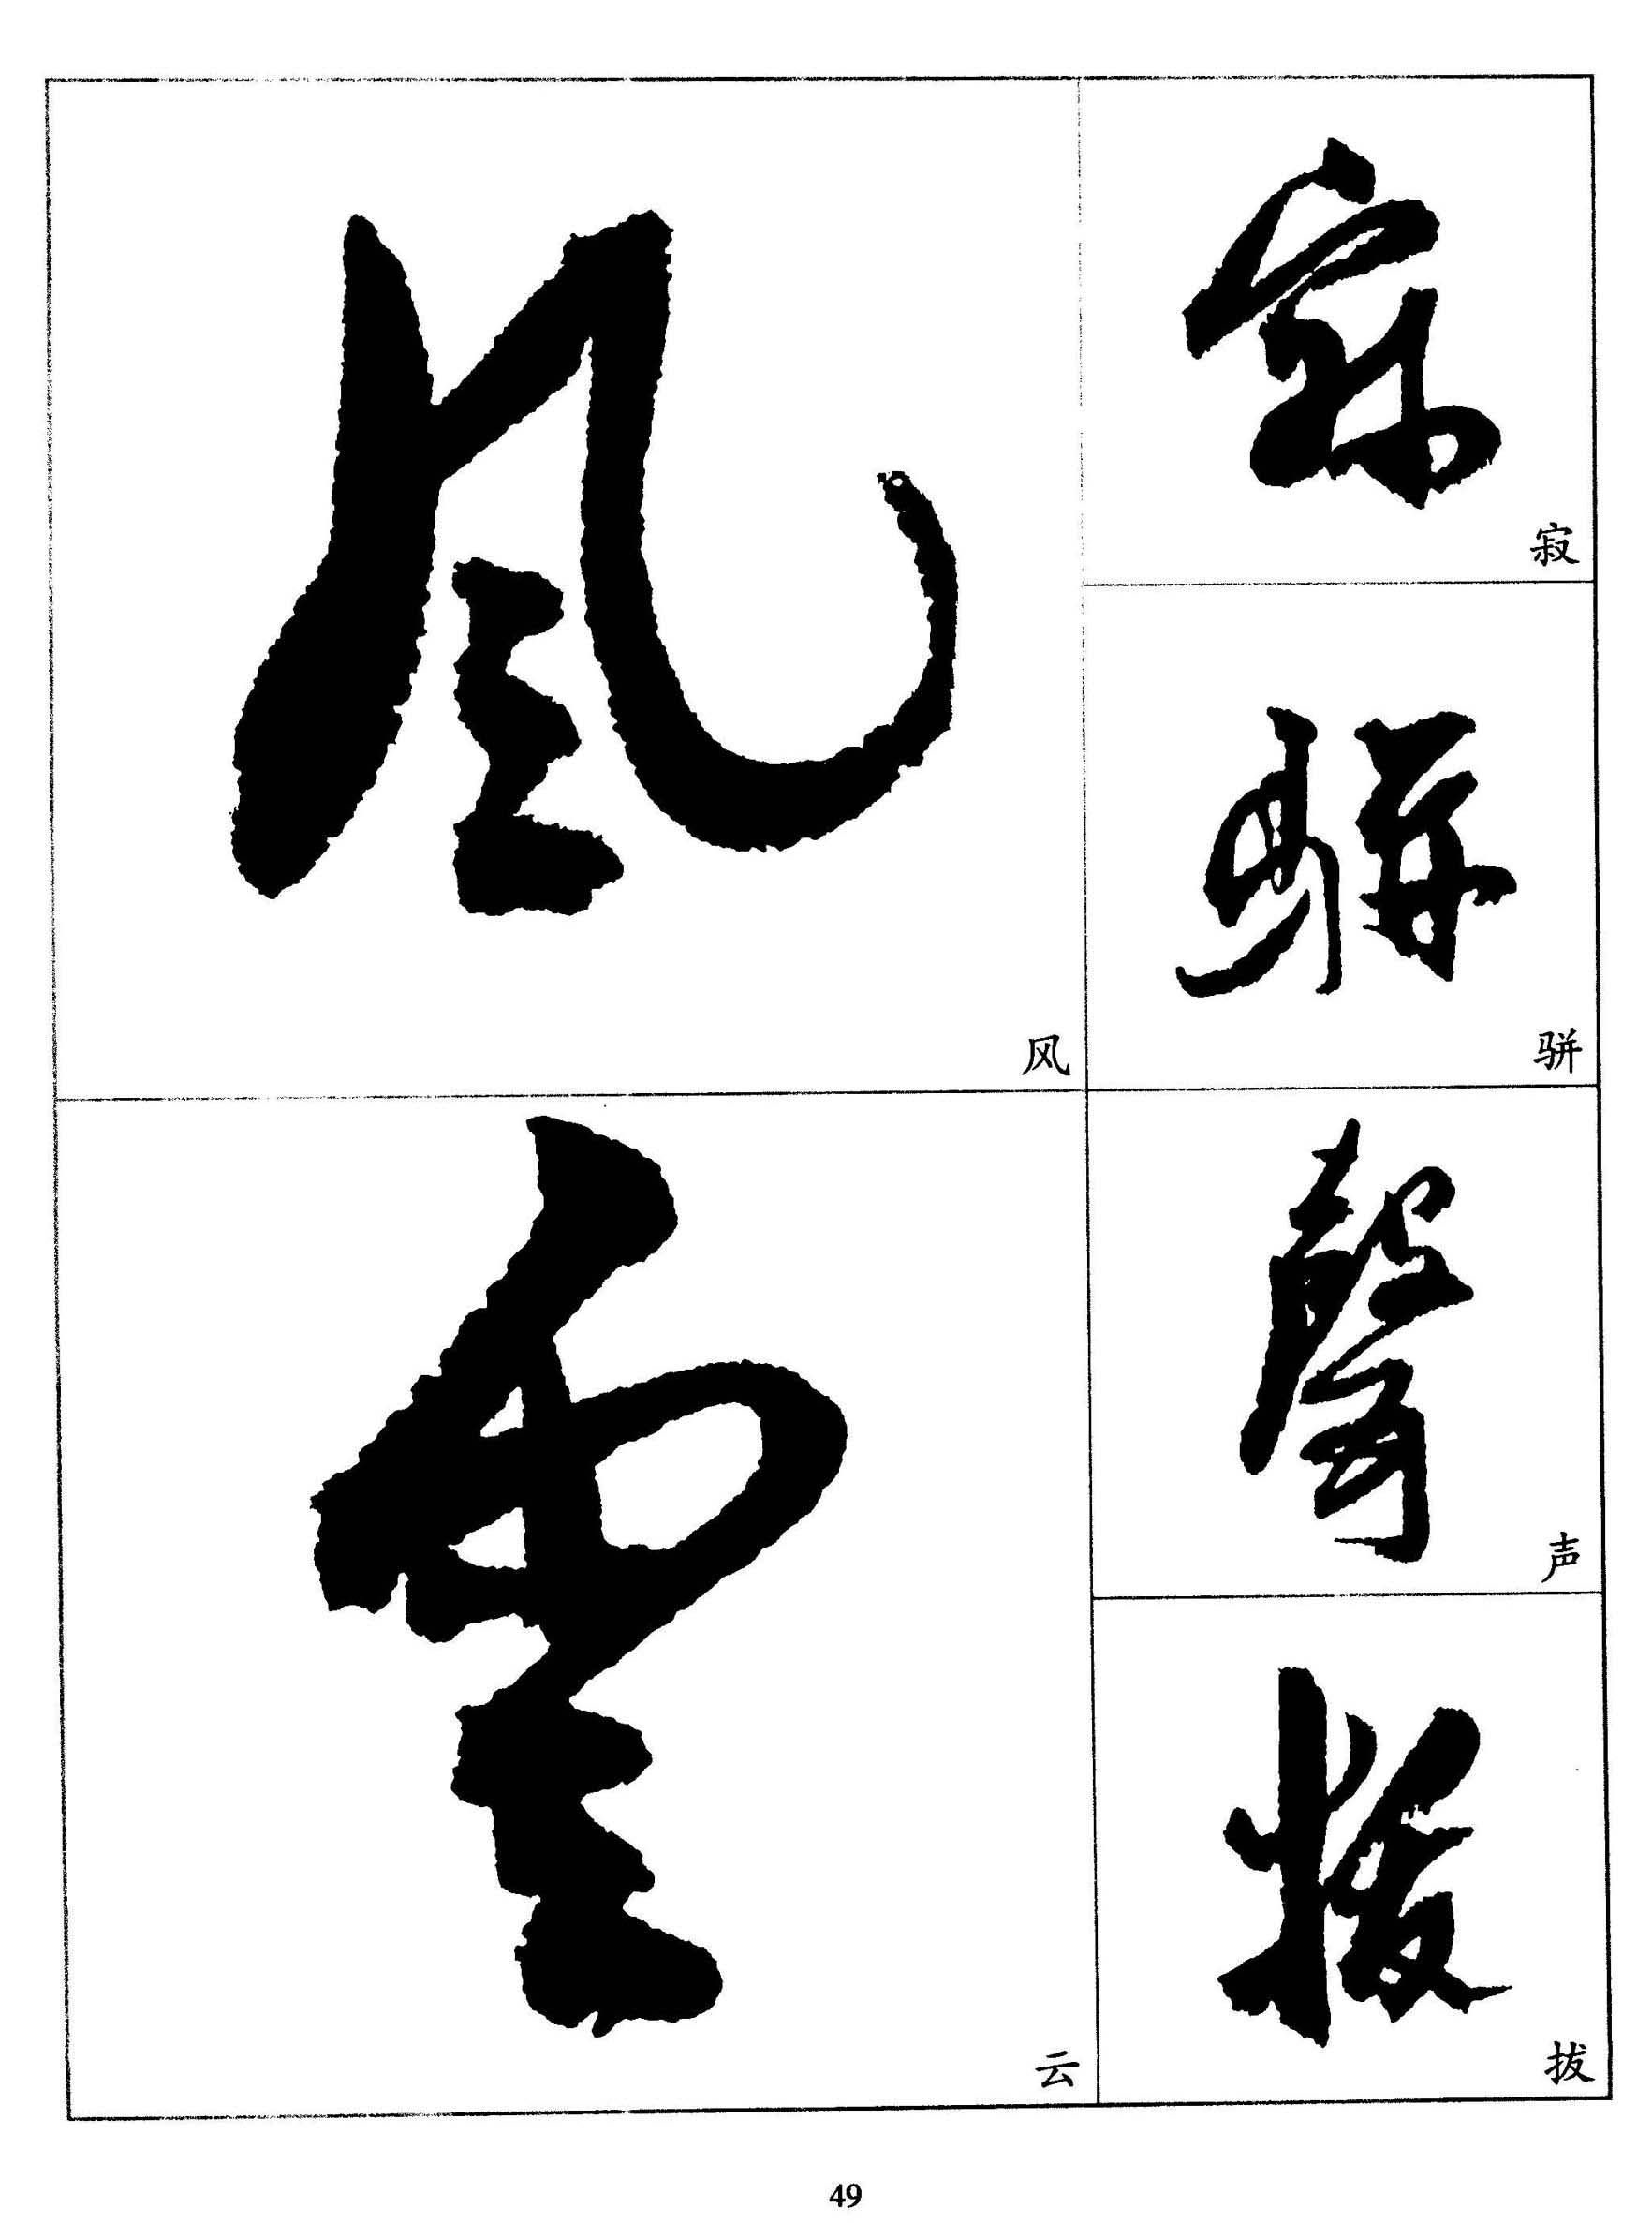 寂
寂
駢
骈
聲
声
拔
拔
風
风
雲
云
49